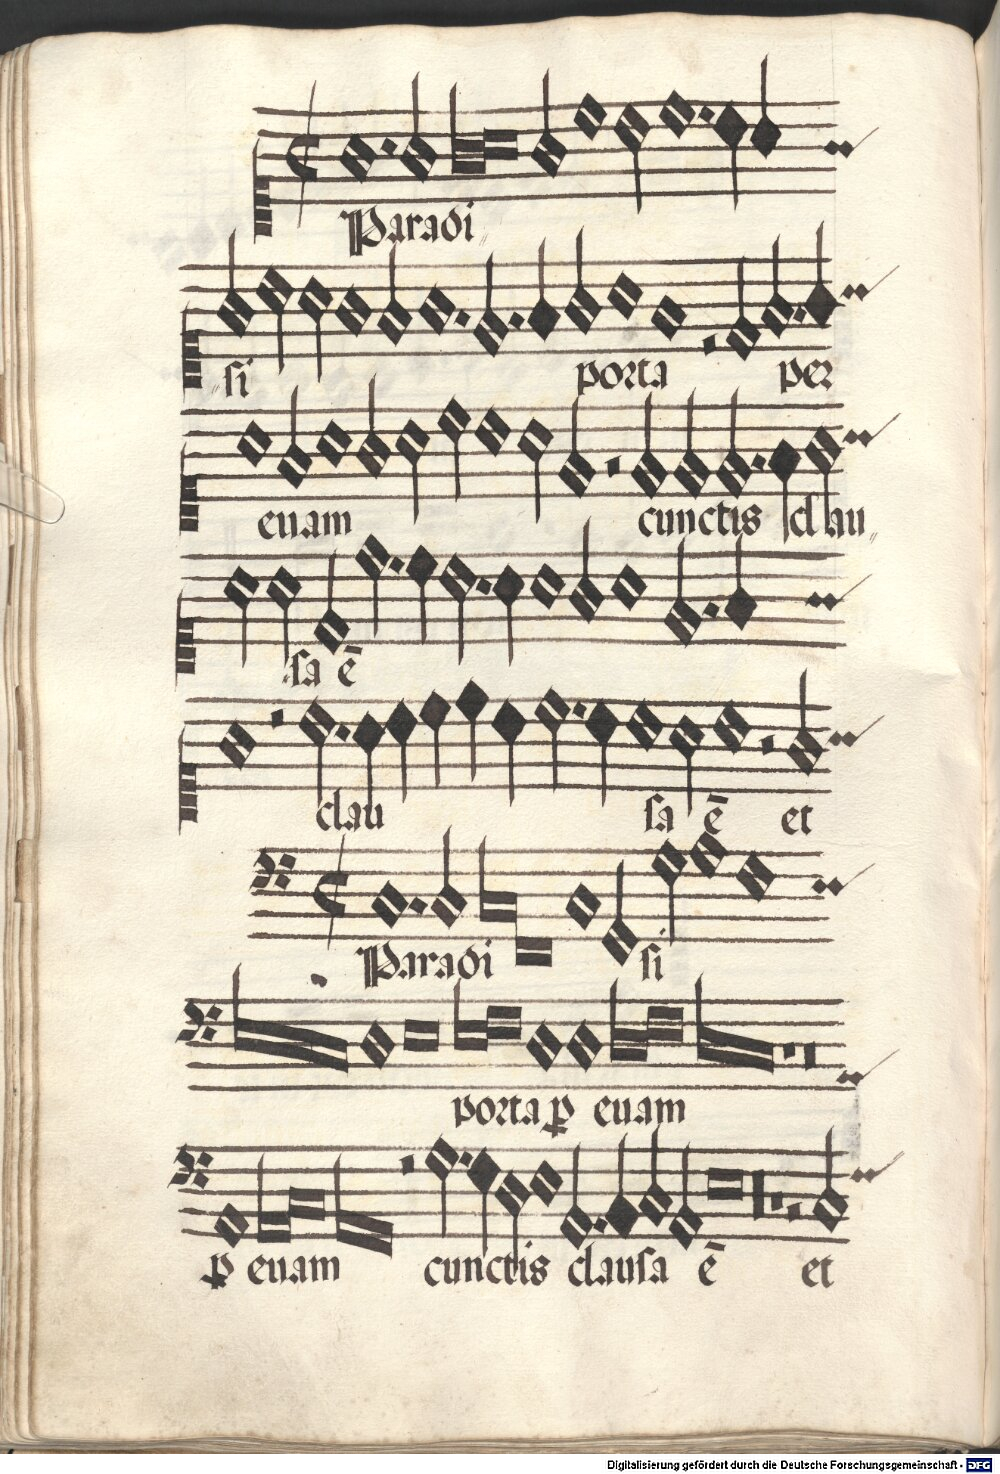 Paradi
si porta per
euam cunctis clau
sa ē
clau sa ē et
Paradi si
porta ꝑ euam
ꝑ euam cunctis clausa ē et
Digitalisierung gefördert durch die Deutsche Forschungsgemeinschaft - DFG